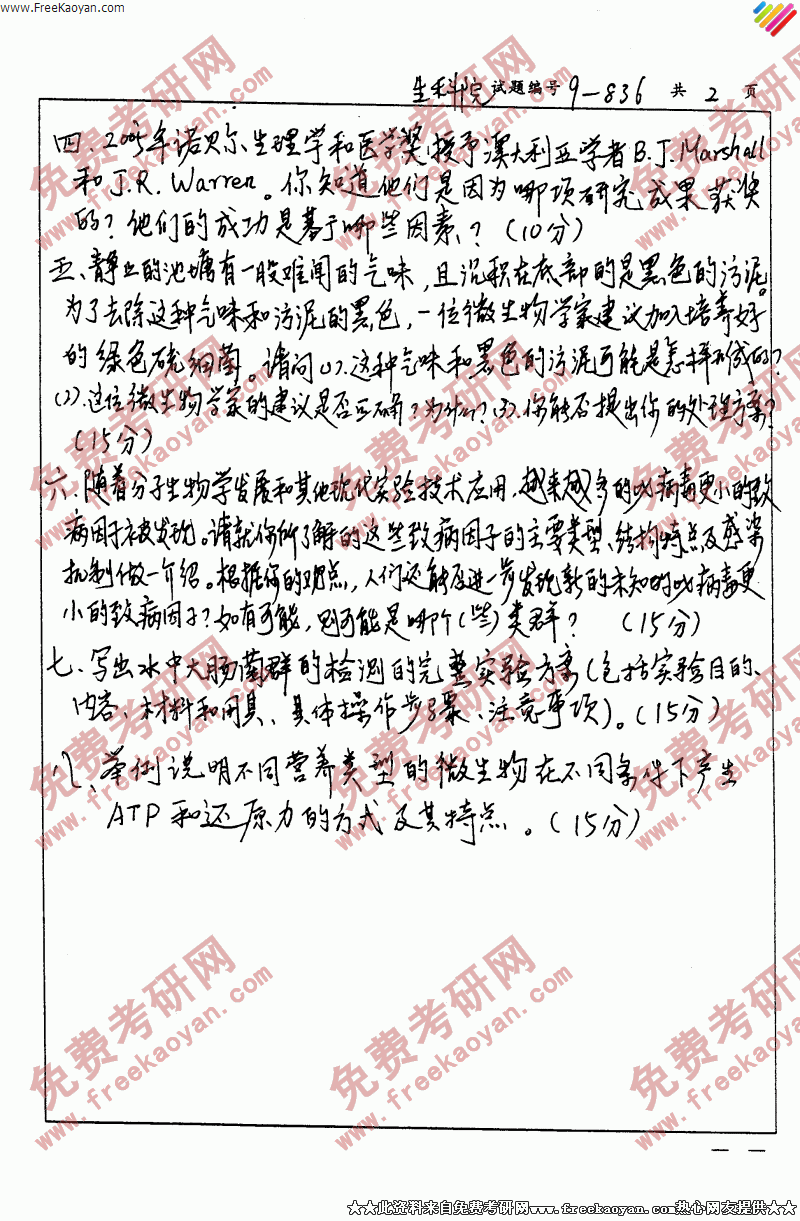 www.FreeKaoyan.com
生科院 试题编号 9-836 共 2 页
四、2005年诺贝尔生理学和医学奖授予澳大利亚学者B.J.Marshall
和J.R.Warren。你知道他们是因为哪项研究成果获奖
的？他们的成功是基于哪些因素？（10分）
五、静止的池塘有一股难闻的气味，且沉积在底部的是黑色的污泥。
为了去除这种气味和污泥的黑色，一位微生物学家建议加入培养好
的绿色硫细菌。请问(1).这种气味和黑色的污泥可能是怎样形成的？
(2).这位微生物学家的建议是否正确？为什么？(3).你能否提出你的处理方案？
（15分）
六、随着分子生物学发展和其他现代实验技术应用，越来越多的比病毒更小的致
病因子被发现。请就你所了解的这些致病因子的主要类型、结构特点及感染
机制做一介绍。根据你的观点，人们还能否进一步发现新的未知的比病毒更
小的致病因子？如有可能，则可能是哪个（些）类群？（15分）
七、写出水中大肠菌群的检测的完整实验方案（包括实验目的、
内容、材料和用具、具体操作步骤、注意事项）。（15分）
八、举例说明不同营养类型的微生物在不同条件下产生
ATP和还原力的方式及其特点。（15分）
免费考研网
www.freekaoyan.com
★★此资料来自免费考研网www.freekaoyan.com热心网友提供★★